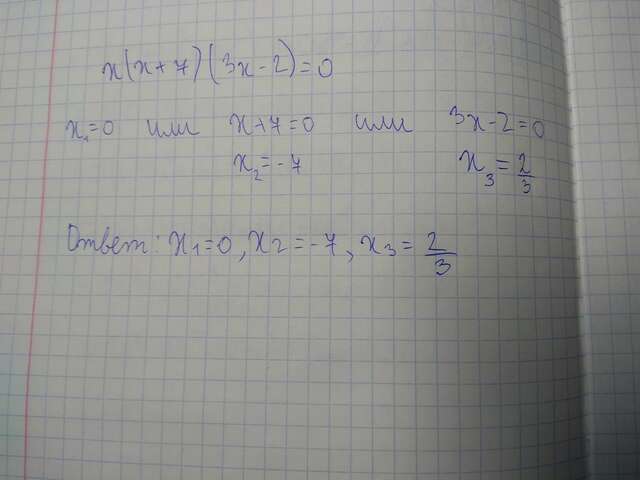 x(x+7)(3x-2)=0
x₁=0 или x+7=0 или 3x-2=0
x₂=-7 x₃=2/3
Ответ: x₁=0, x₂=-7, x₃=2/3